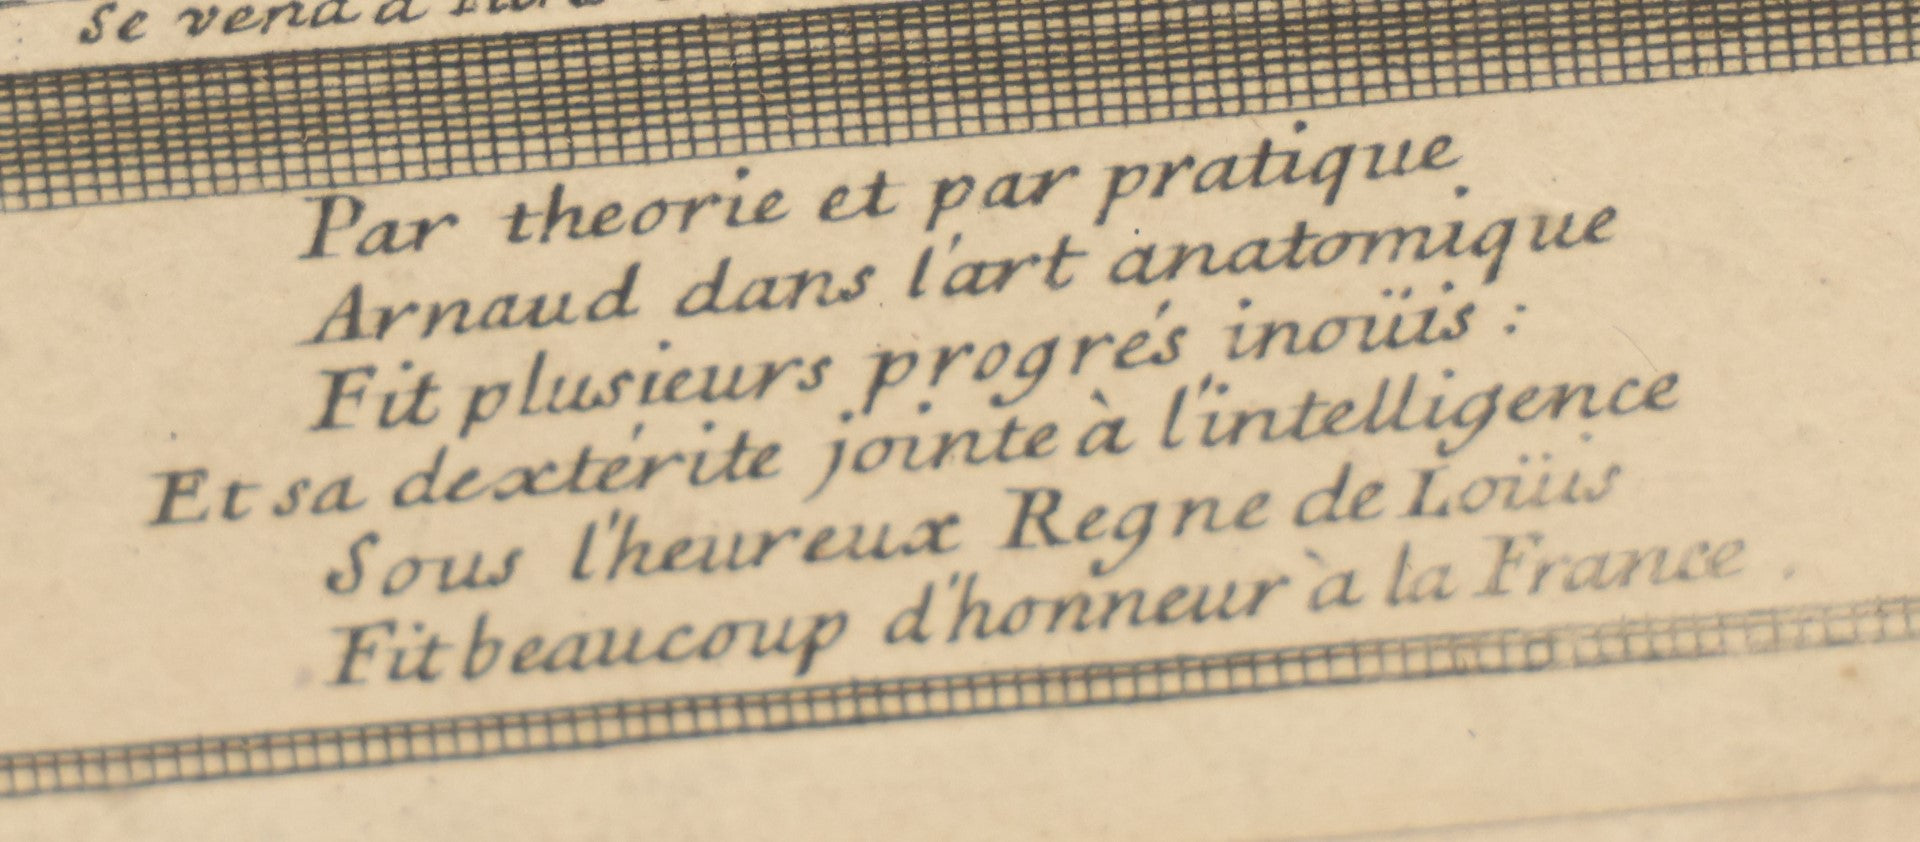 se vend a
Par theorie et par pratique
Arnaud dans l'art anatomique
Fit plusieurs progrés inoüis :
Et sa dextérite jointe à l'intelligence
Sous l'heureux Regne de Loüis
Fit beaucoup d'honneur à la France .